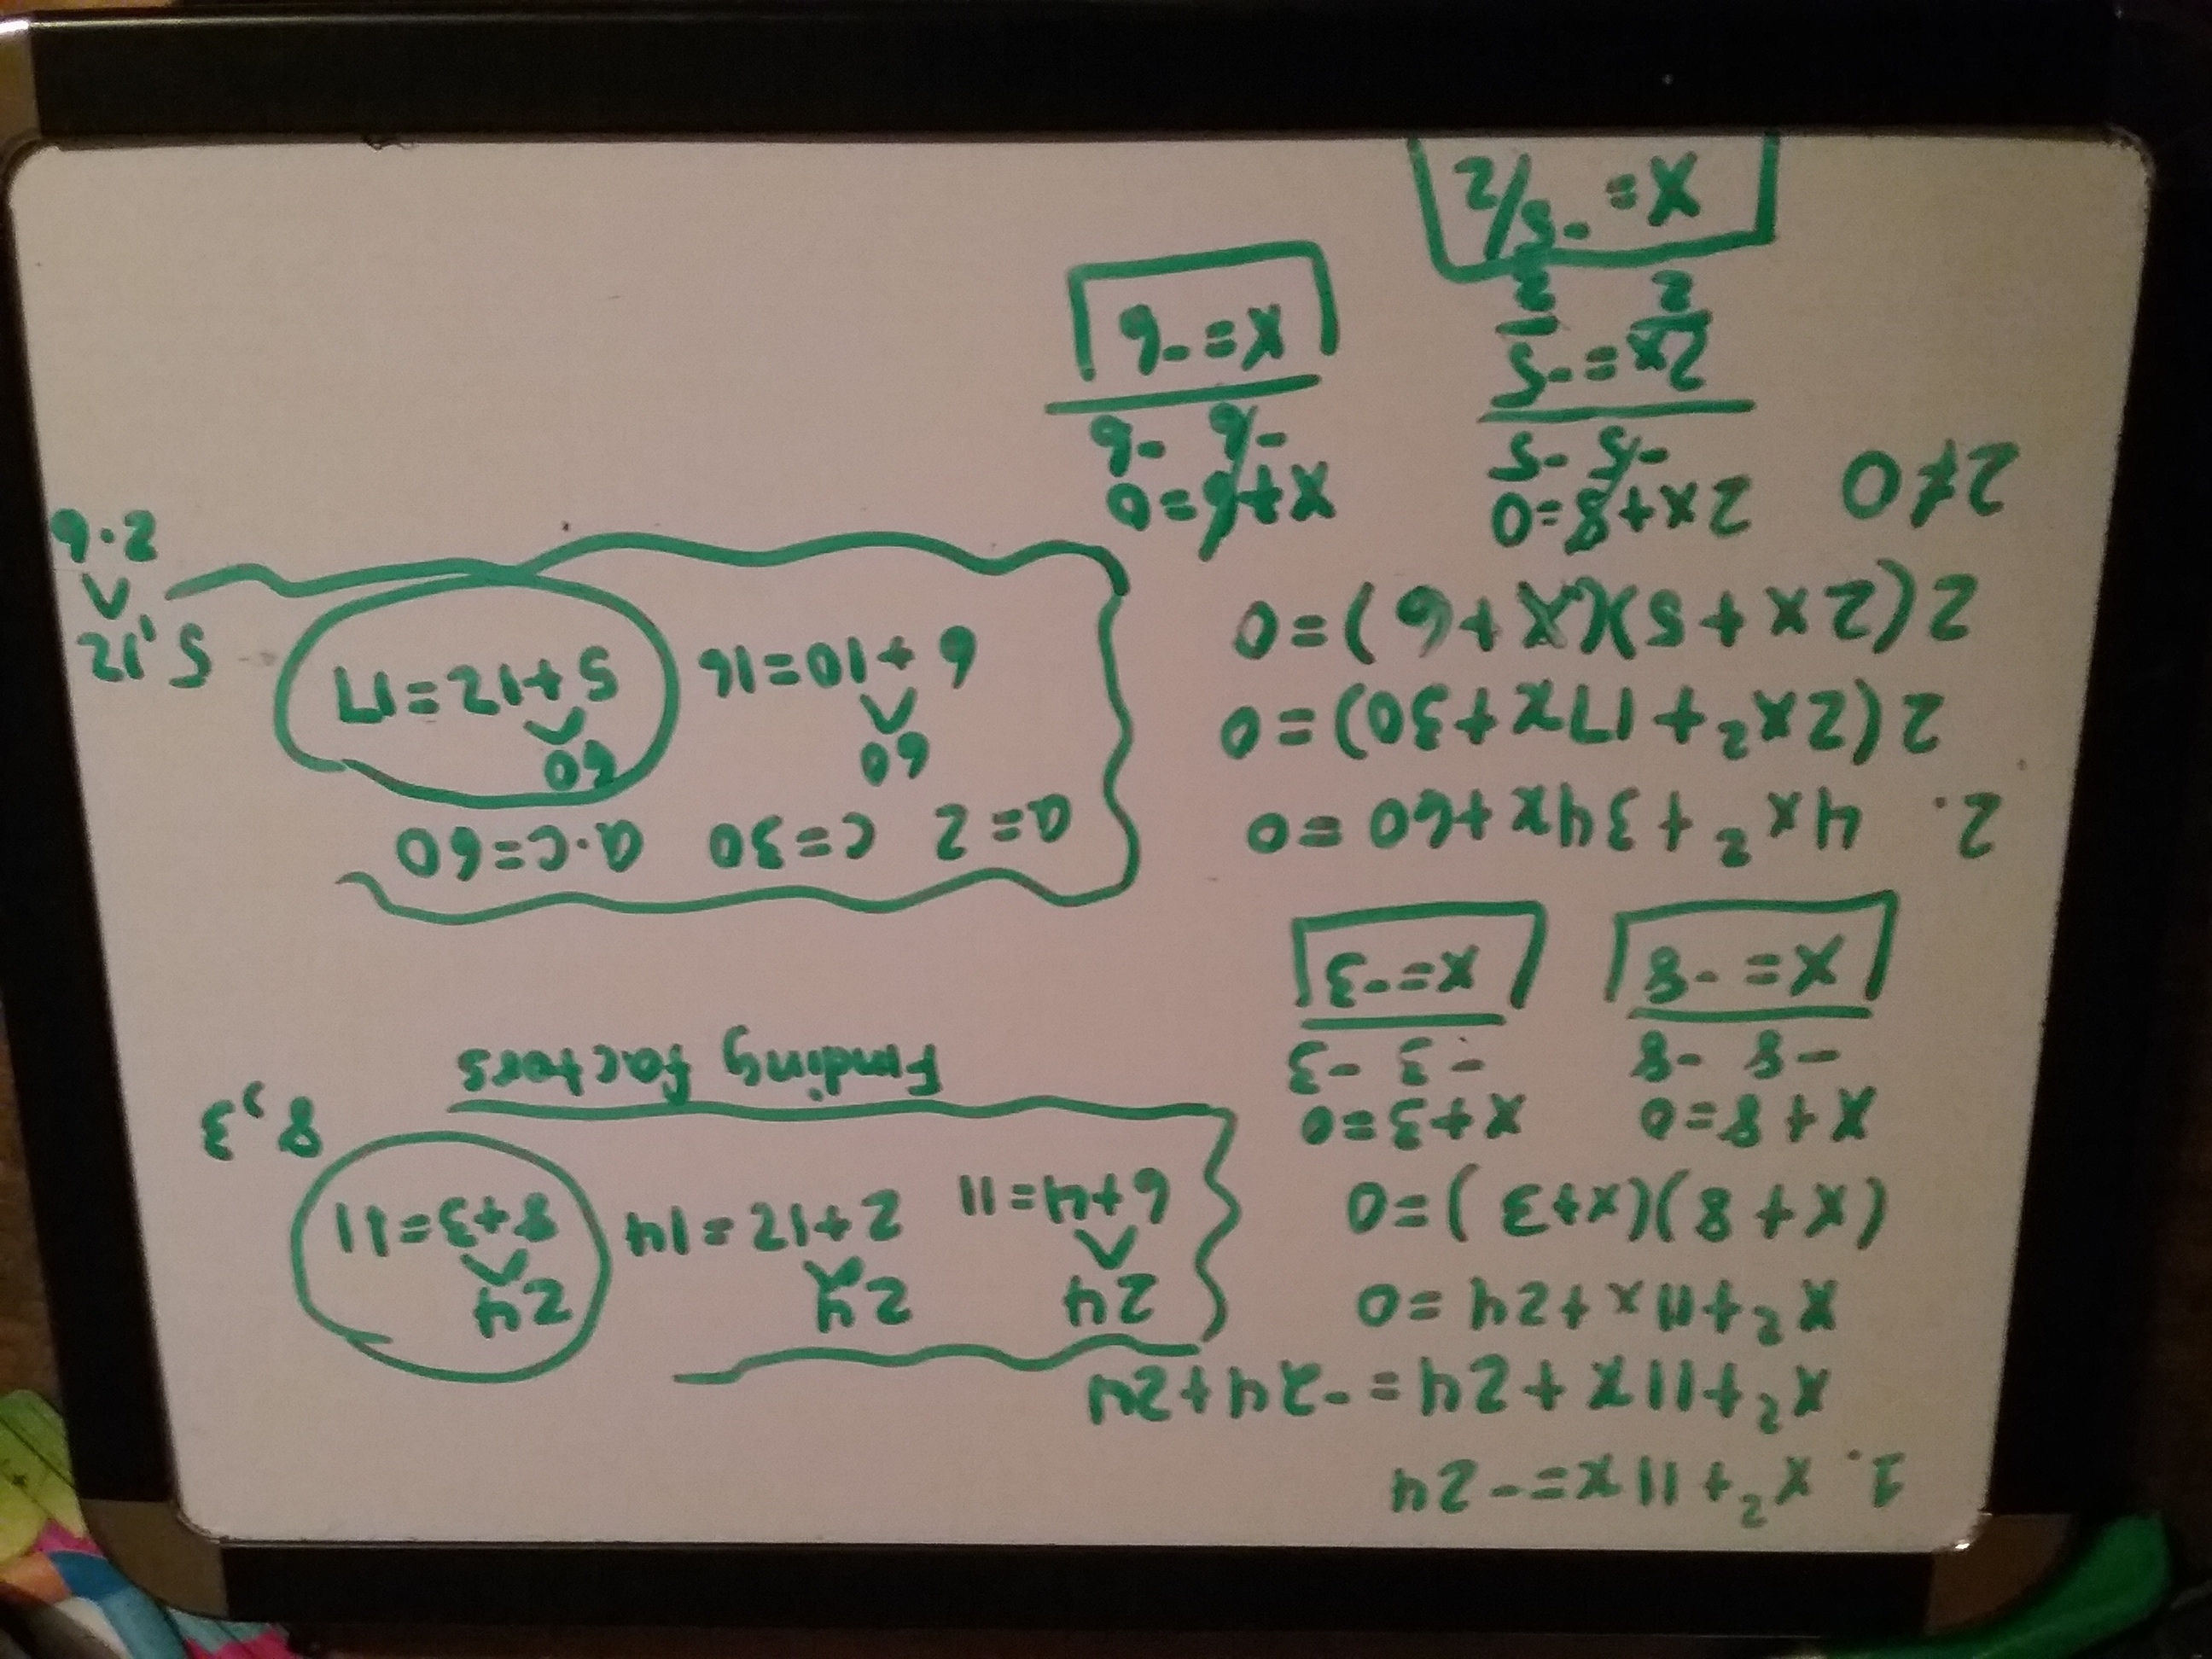 1. x²+11x=-24
x²+11x+24=-24+24
x²+11x+24=0
(x+8)(x+3)=0
x+8=0 x+3=0
-8 -8 -3 -3
x=-8 x=-3
24 24 24
6+4=11 2+12=14 8+3=11
8,3
Finding factors
2. 4x²+34x+60=0
2(2x²+17x+30)=0
2(2x+5)(x+6)=0
2≠0 2x+8=0 x+6=0
-5 -5 -6 -6
2x=-5 x=-6
2 2
x=-5/2
a=2 c=30 a·c=60
60 60
6+10=16 5+12=17
5,12
2·6